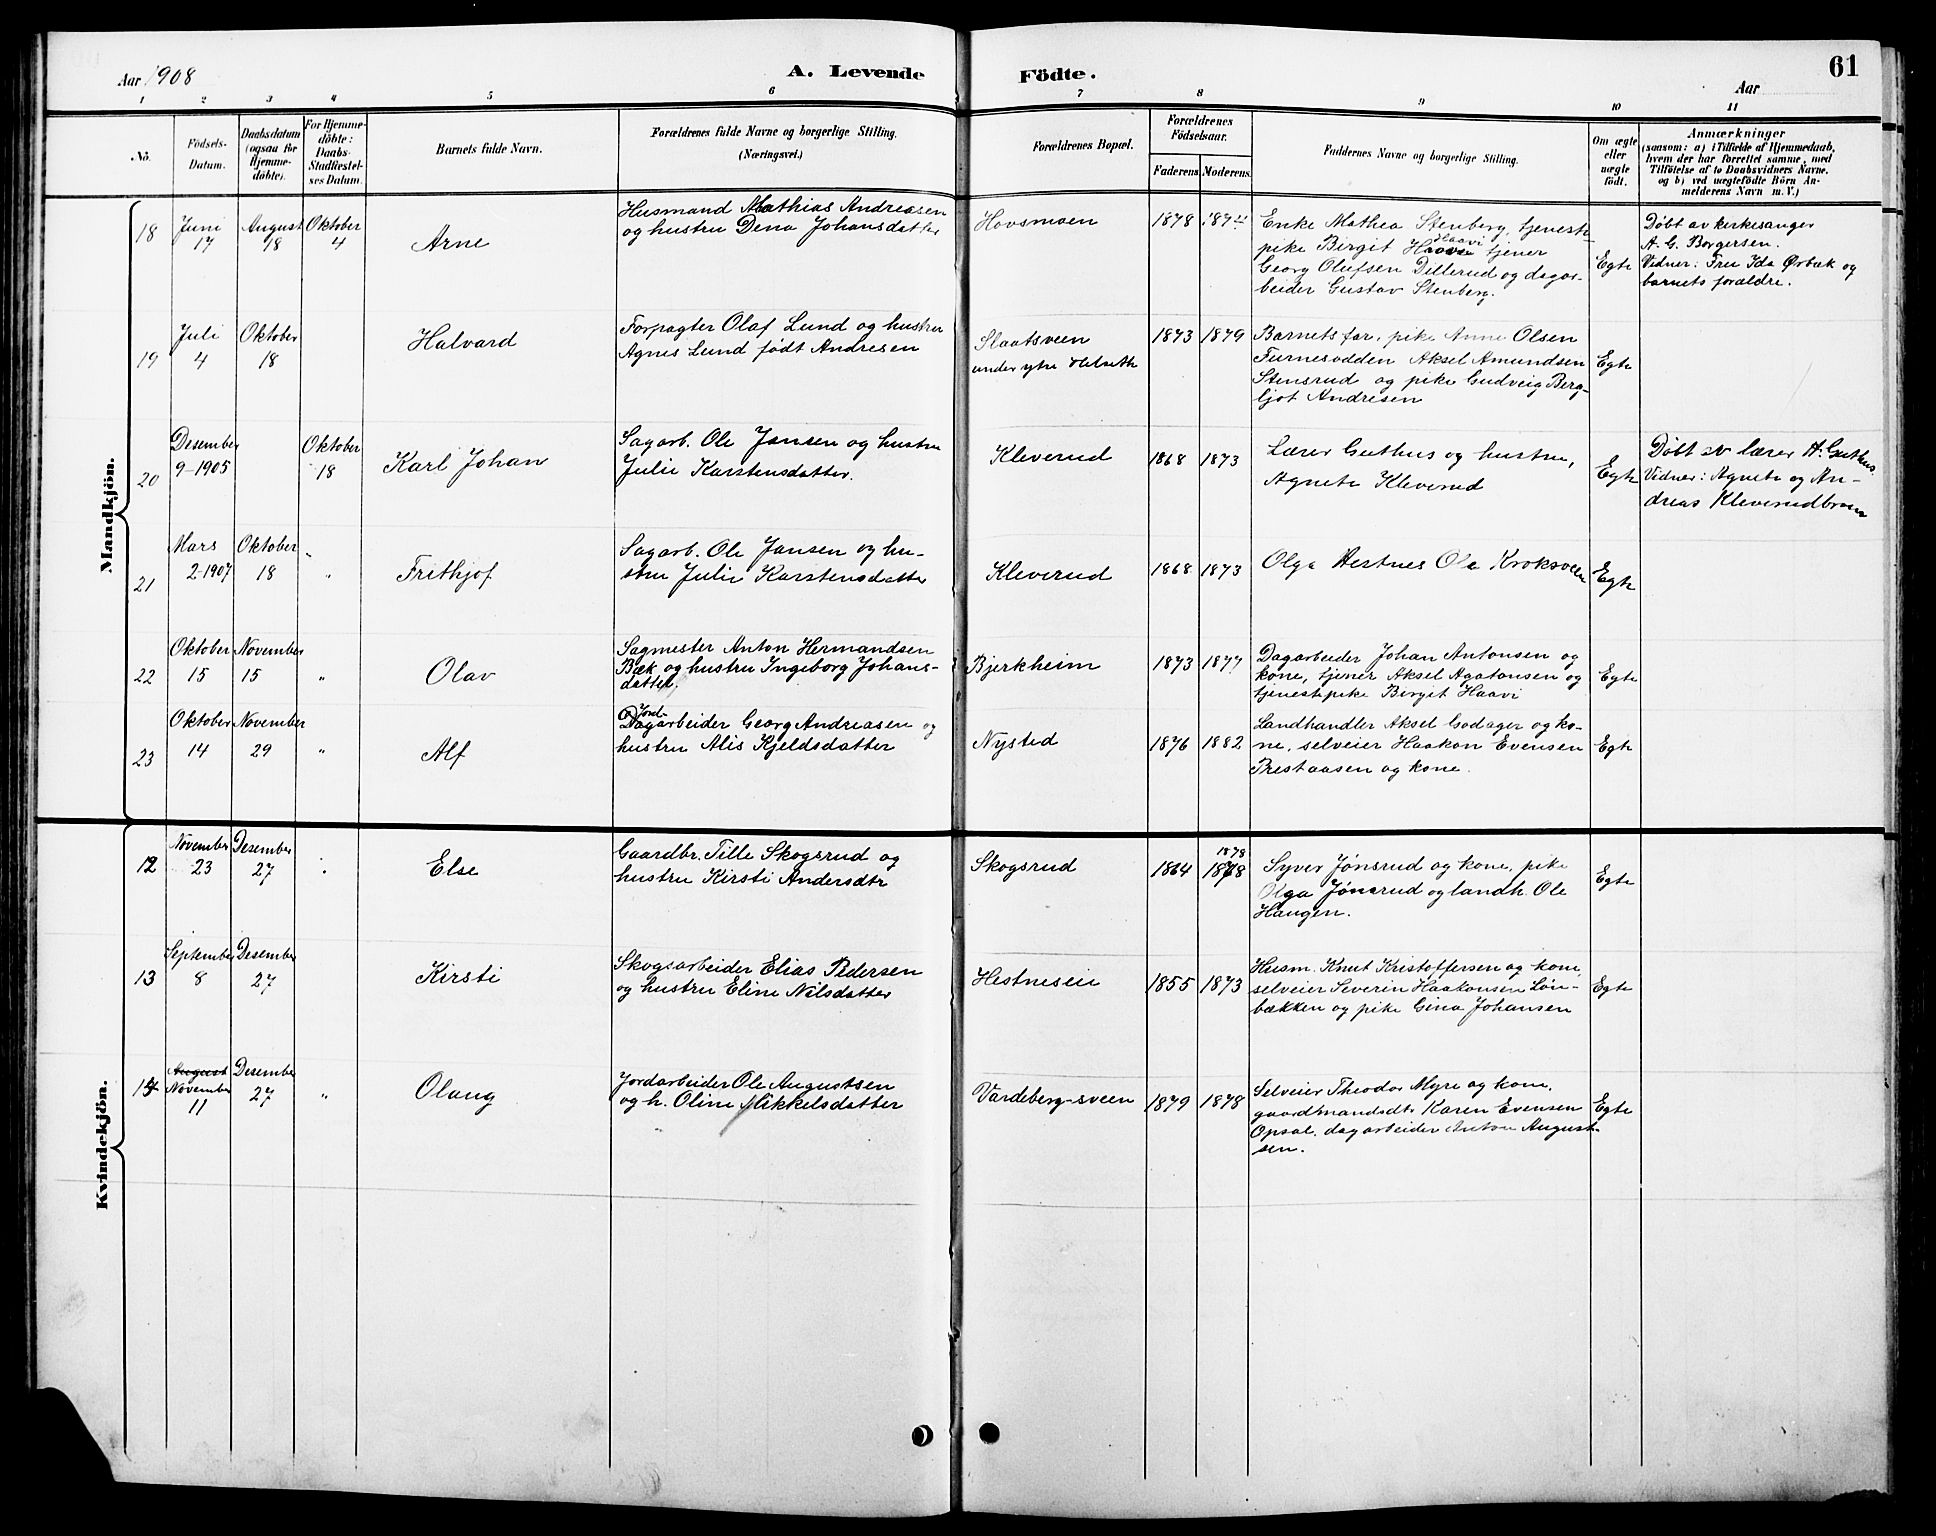 Aar 1908
A. Levende
Födte.
Aar
61
1 2 3 4 5 6 7 8 9 10 11
No.
Födsels-
Datum.
Daabsdatum
(ogsaa for
Hjemme-
döbte).
For Hjemme-
döbte:
Daabs-
Stadfestel-
ses Datum.
Barnets fulde Navn.
Forældrenes fulde Navne og borgerlige Stilling.
(Næringsvei.)
Forældrenes Bopæl.
Forældrenes
Födselsaar.
Faderens. Moderens.
Faddernes Navne og borgerlige Stilling.
Om ægte
eller
uægte
födt.
Anmærkninger
(saasom: a) i Tilfælde af Hjemmedaab,
hvem der har forrettet samme, med
Tilföielse af to Daabsvidners Navne,
og b) ved uægtefödte Börn An-
melderens Navn m. V.)
Mandkjön.
18
Juni
17
August
18
Oktober
4
Arne
Husmand Mathias Andreasen
og hustru Dena Johansdatter
Hovsmoen
1878
Enke Mathea Stenberg, tjeneste-
pike Birgit Haavi tjener
Georg Olufsen Dillerud og dagar-
beider Gustav Stenberg.
Egte
Døbt av kirkesanger
A. G. Borgersen.
Vidner: Fru Ida Ørbæk og
barnets forældre.
19
Juli
4
Oktober
18
Halvard
Forpagter Olaf Lund og hustru
Agnes Lund født Andresen
Slaatsveen
under ytre Helseth
1873 1879
Barnets far, pike Anne Olsen
Furnesodden Aksel Amundsen
Stensrud og pike Gudveig Berg-
ljot Andresen
Egte
20
Desember
9-1905
Oktober
18
Karl Johan
Sagarb. Ole Jansen og hustru
Julie Karstensdatter.
Kleverud
1868 1873
Lærer Guthus og hustru,
Agnete Kleverud
Egte
Døbt av lærer A. Guthus
Vidner: Agnete og An-
dreas Kleverudbraaten
21
Mars
2-1907
Oktober
18
"
Frithjof
Sagarb. Ole Jansen og hu-
stru Julie Karstensdatter
Kleverud
1868 1873
Olga Hestnes Ole Kroksveen
Egte
22
Oktober
15
November
15
"
Olav
Sagmester Anton Hermandsen
Bæk og hustru Ingeborg Johans-
datter.
Bjerkheim
1873 1877
Dagarbeider Johan Antonsen og
kone, tjener Aksel Agatonsen og
tjenestepike Birgit Haavi
Egte
23
Oktober
14
November
29
"
Alf
Jord-
Dagarbeider Georg Andreasen og
hustru Alis Kjeldsdatter
Nysted
1876 1882
Landhandler Aksel Godager og ko-
ne, selveier Haakon Evensen
Prestaasen og kone.
Egte
Kvindekjön.
12
November
23
Desember
27
Else
Gaardbr. Tille Skogsrud og
hustru Kirsti Andersdtr
Skogsrud
1864 1878
Syver Jønsrud og kone, pike
Olga Jønsrud og landh. Ole
Haugen.
Egte
13
September
8
Desember
27
Kirsti
Skogsarbeider Elias Pedersen
og hustru Eline Nilsdatter
Hestneseie
1855 1873
Husm. Knut Kristoffersen og kone,
selveier Severin Haakonsen Løn-
bækken og pike Gina Johansen
Egte
14
August
November
11
Desember
27
"
Olaug
Jordarbeider Ole Augustsen
og h. Oline Mikkelsdatter
Vardeberg-sveen
1879 1878
Selveier Theodor Myre og kone,
gaardmandsdtr Karen Evensen
Opsal, dagarbeider Anton August-
sen.
Egte